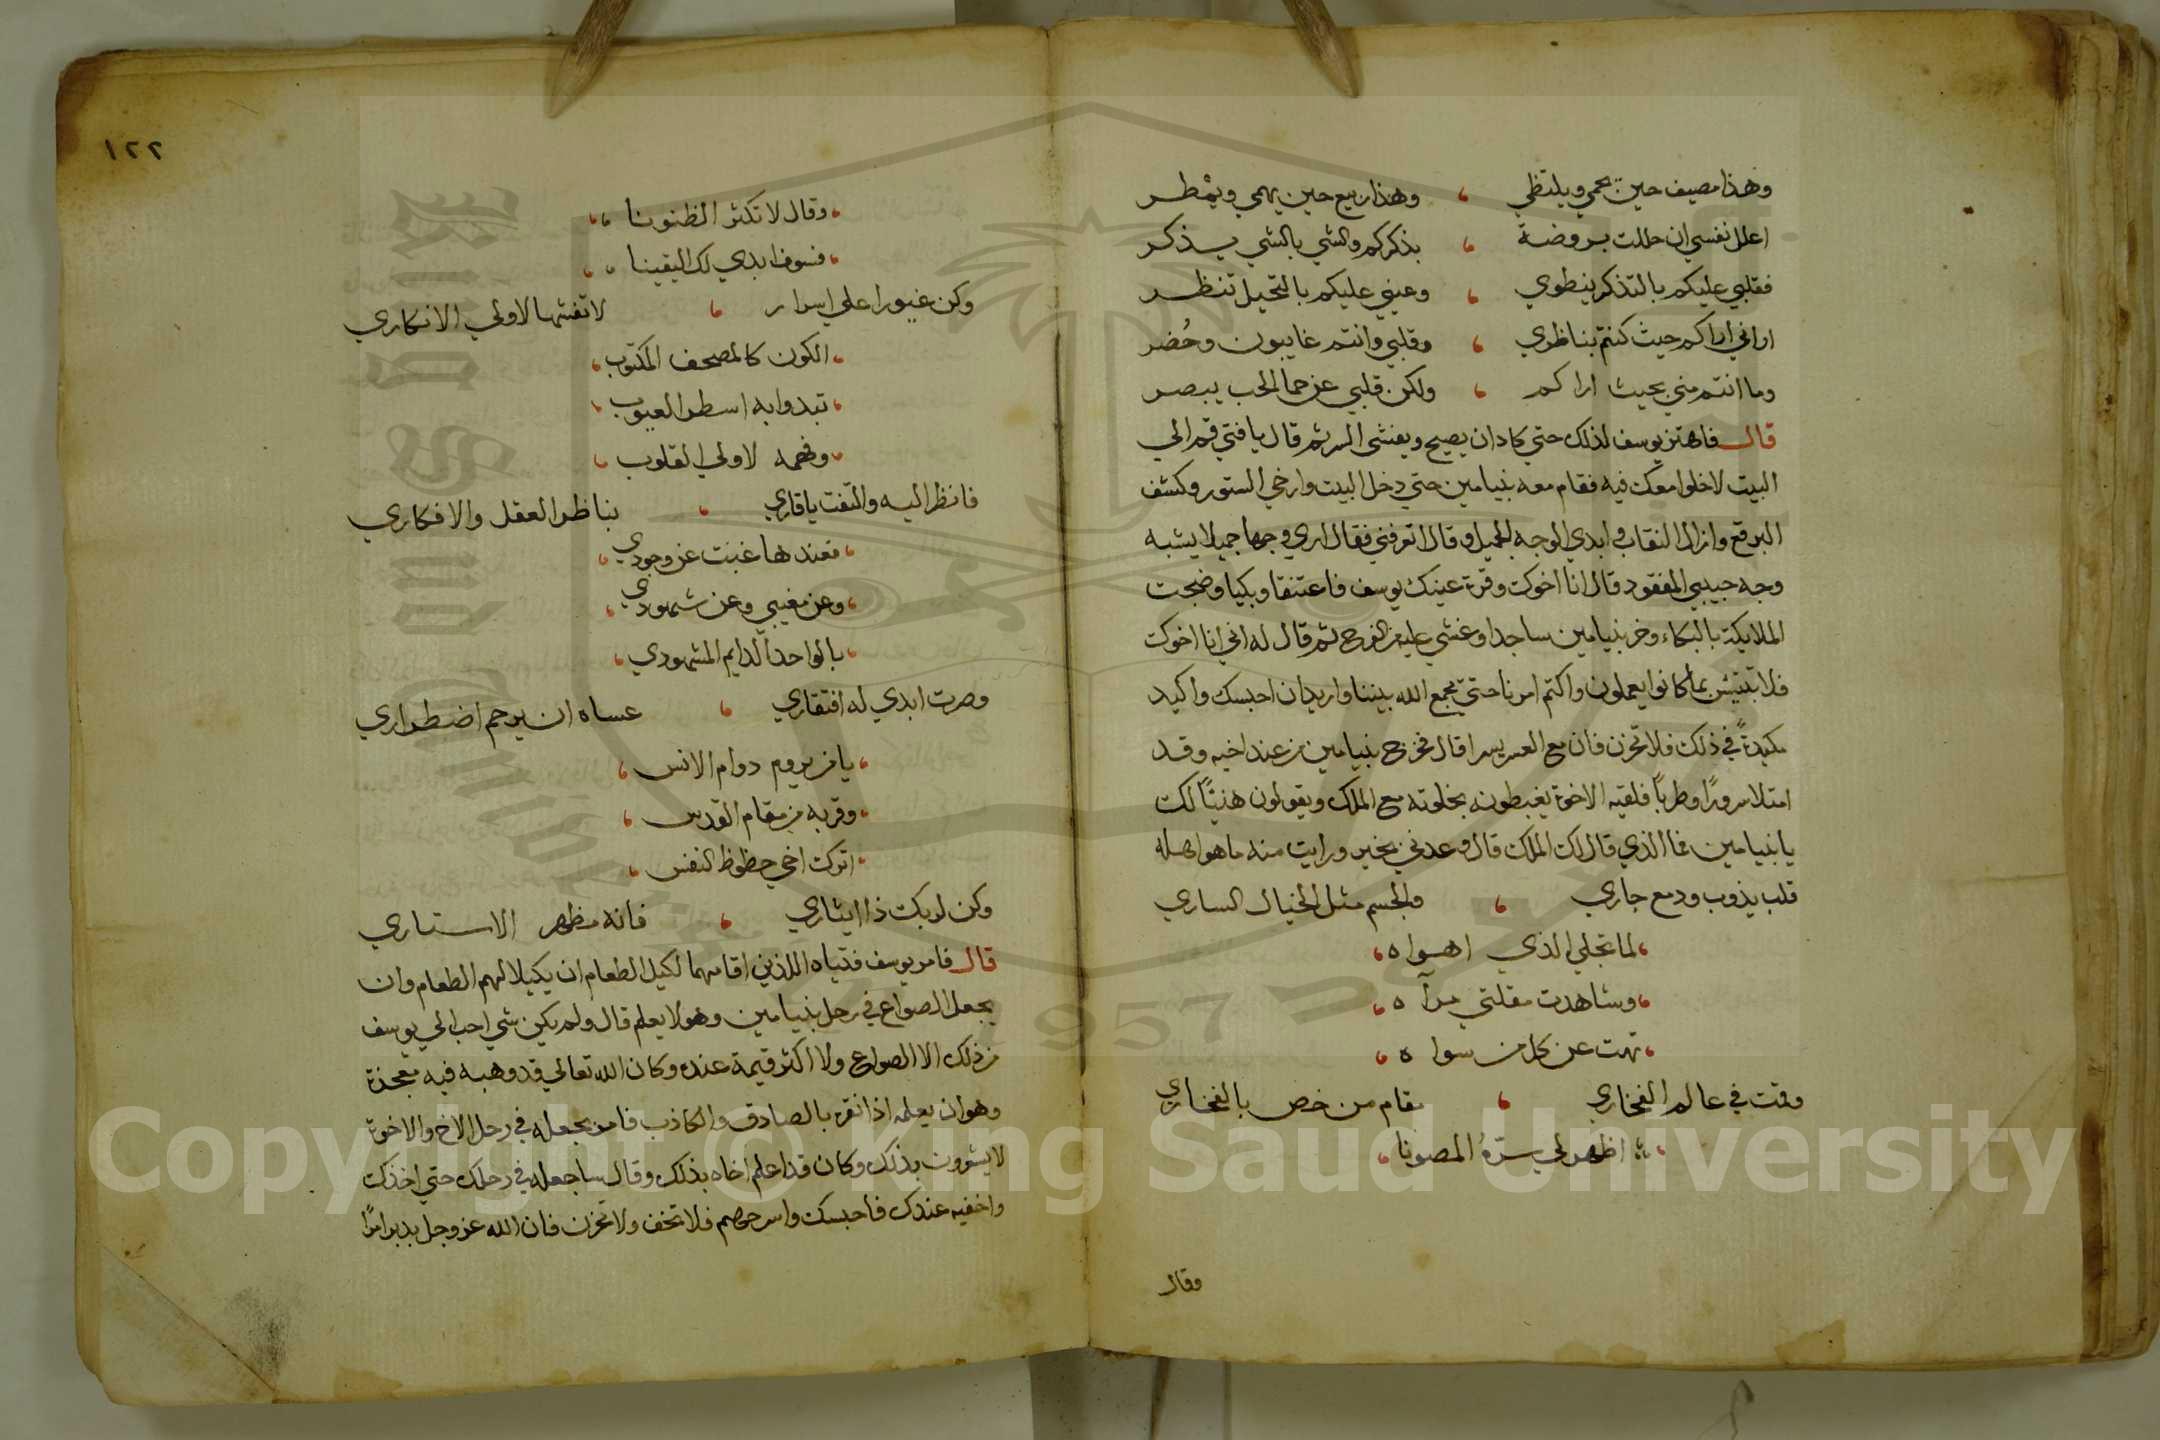 وهذا مصيف حين يحمي ويلتظي ، وهذا ربيع حين يهمي ويمطر
اعلل نفسي ان حللت بروضة ، بذكركم والشي بالشي يذكر
فقلبي عليكم بالتذكر ينطوي ، وعيني عليكم بالتخيل تنظر
اراني اراكم حيث كنتم بناظري ، وقلبي وانتم غايبون وحُضر
وما انتم مني بحيث اراكم ، ولكن قلبي عن حما الحب يبصر
قال فاهتز يوسف لذلك حتي كاد ان يصيح ويفشي السر ثم قال يا فتي قم الي
البيت لاخلوا معك فيه فقام معه بنيامين حتي دخل البيت وارخي الستور وكشف
البرقع وازال النقاب وابدي الوجه الجميل وقال اتعرفني فقال اري وجها جميلا يشبه
وجه حبيبي المفقود قال انا اخوك وقرة عينك يوسف فاعتنقا وبكيا وضجت
الملايكة بالبكاء وخر بنيامين ساجدا وغشي عليه من الفرح ثم قال له اني انا اخوك
فلا تبتئس بما كانوا يعملون واكتم امرنا حتي يجمع الله بيننا واريد ان احبسك واكيد
مكيدةً في ذلك فلا تحزن فان مع العسر يسرا قال فخرج بنيامين من عند اخيه وقد
امتلا سرورًا وطربًا فلقيه الاخوة يغبطونه بخلوته مع الملك ويقولون هنيئًا لك
يا بنيامين فما الذي قال لك الملك قال وعدني بخير ورايت منه ما هو اهله
قلب يذوب ودمع جاري ، والجسم مثل الخيال الساري
، لما تجلي الذي اهواه ،
، وشاهدت مقلتي مرآه ،
، تهت عن كل من سواه ،
وقمت في عالم الفخاري ، مقام من خص بالفخاري
، اظهر لي سرّهُ المصونا ،
وقال
١٢٢
، وقال لا تكثر الظنونا ،،
، فسوف ابدي لك اليقينا ،
وكن غيورا علي اسرار ، لا تفشها لاولي الانكاري
، الكون كالمصحف المكتوب ،
، تبدوا به اسطر الغيوب ،
، وفهمه لاولي القلوب ،
فانظر اليه والتفت يا قاري ، بناظر العقل والافكاري
، فعندها غبت عن وجودي ،
، وعن مغيبي وعن شهودي ،
، بالواحد الدايم المشهودي ،
وصرت ابدي له افتقاري ، عساه ان يرحم اضطراري
، يا من يروم دوام الانس ،
، وقربه من مقام القدس ،
، اترك اخي حظوظ النفس ،
وكن لربك ذا ايثاري ، فانه مظهر الاستاري
قال فامر يوسف فتياه اللذين اقامهما لكيل الطعام ان يكيلا لهم الطعام وان
يجعل الصواع في رحل بنيامين وهو لا يعلم قال ولم يكن شي احب الي يوسف
من ذلك الا الصواع ولا اكثر قيمة عنده وكان الله تعالي قد وهبه فيه معجزة
وهو ان يعلمه اذا نقره بالصادق والكاذب فامر بجعله في رحل الاخ والاخوة
لا يشعرون بذلك وكان قد اعلم اخاه بذلك وقال ساجعله في رحلك حتي اخذك
واخفيه عندك فاحبسك واسرحهم فلا تخف ولا تحزن فان الله عز وجل يدبر امرًا
Copyright © King Saud University
King Saud University
1957